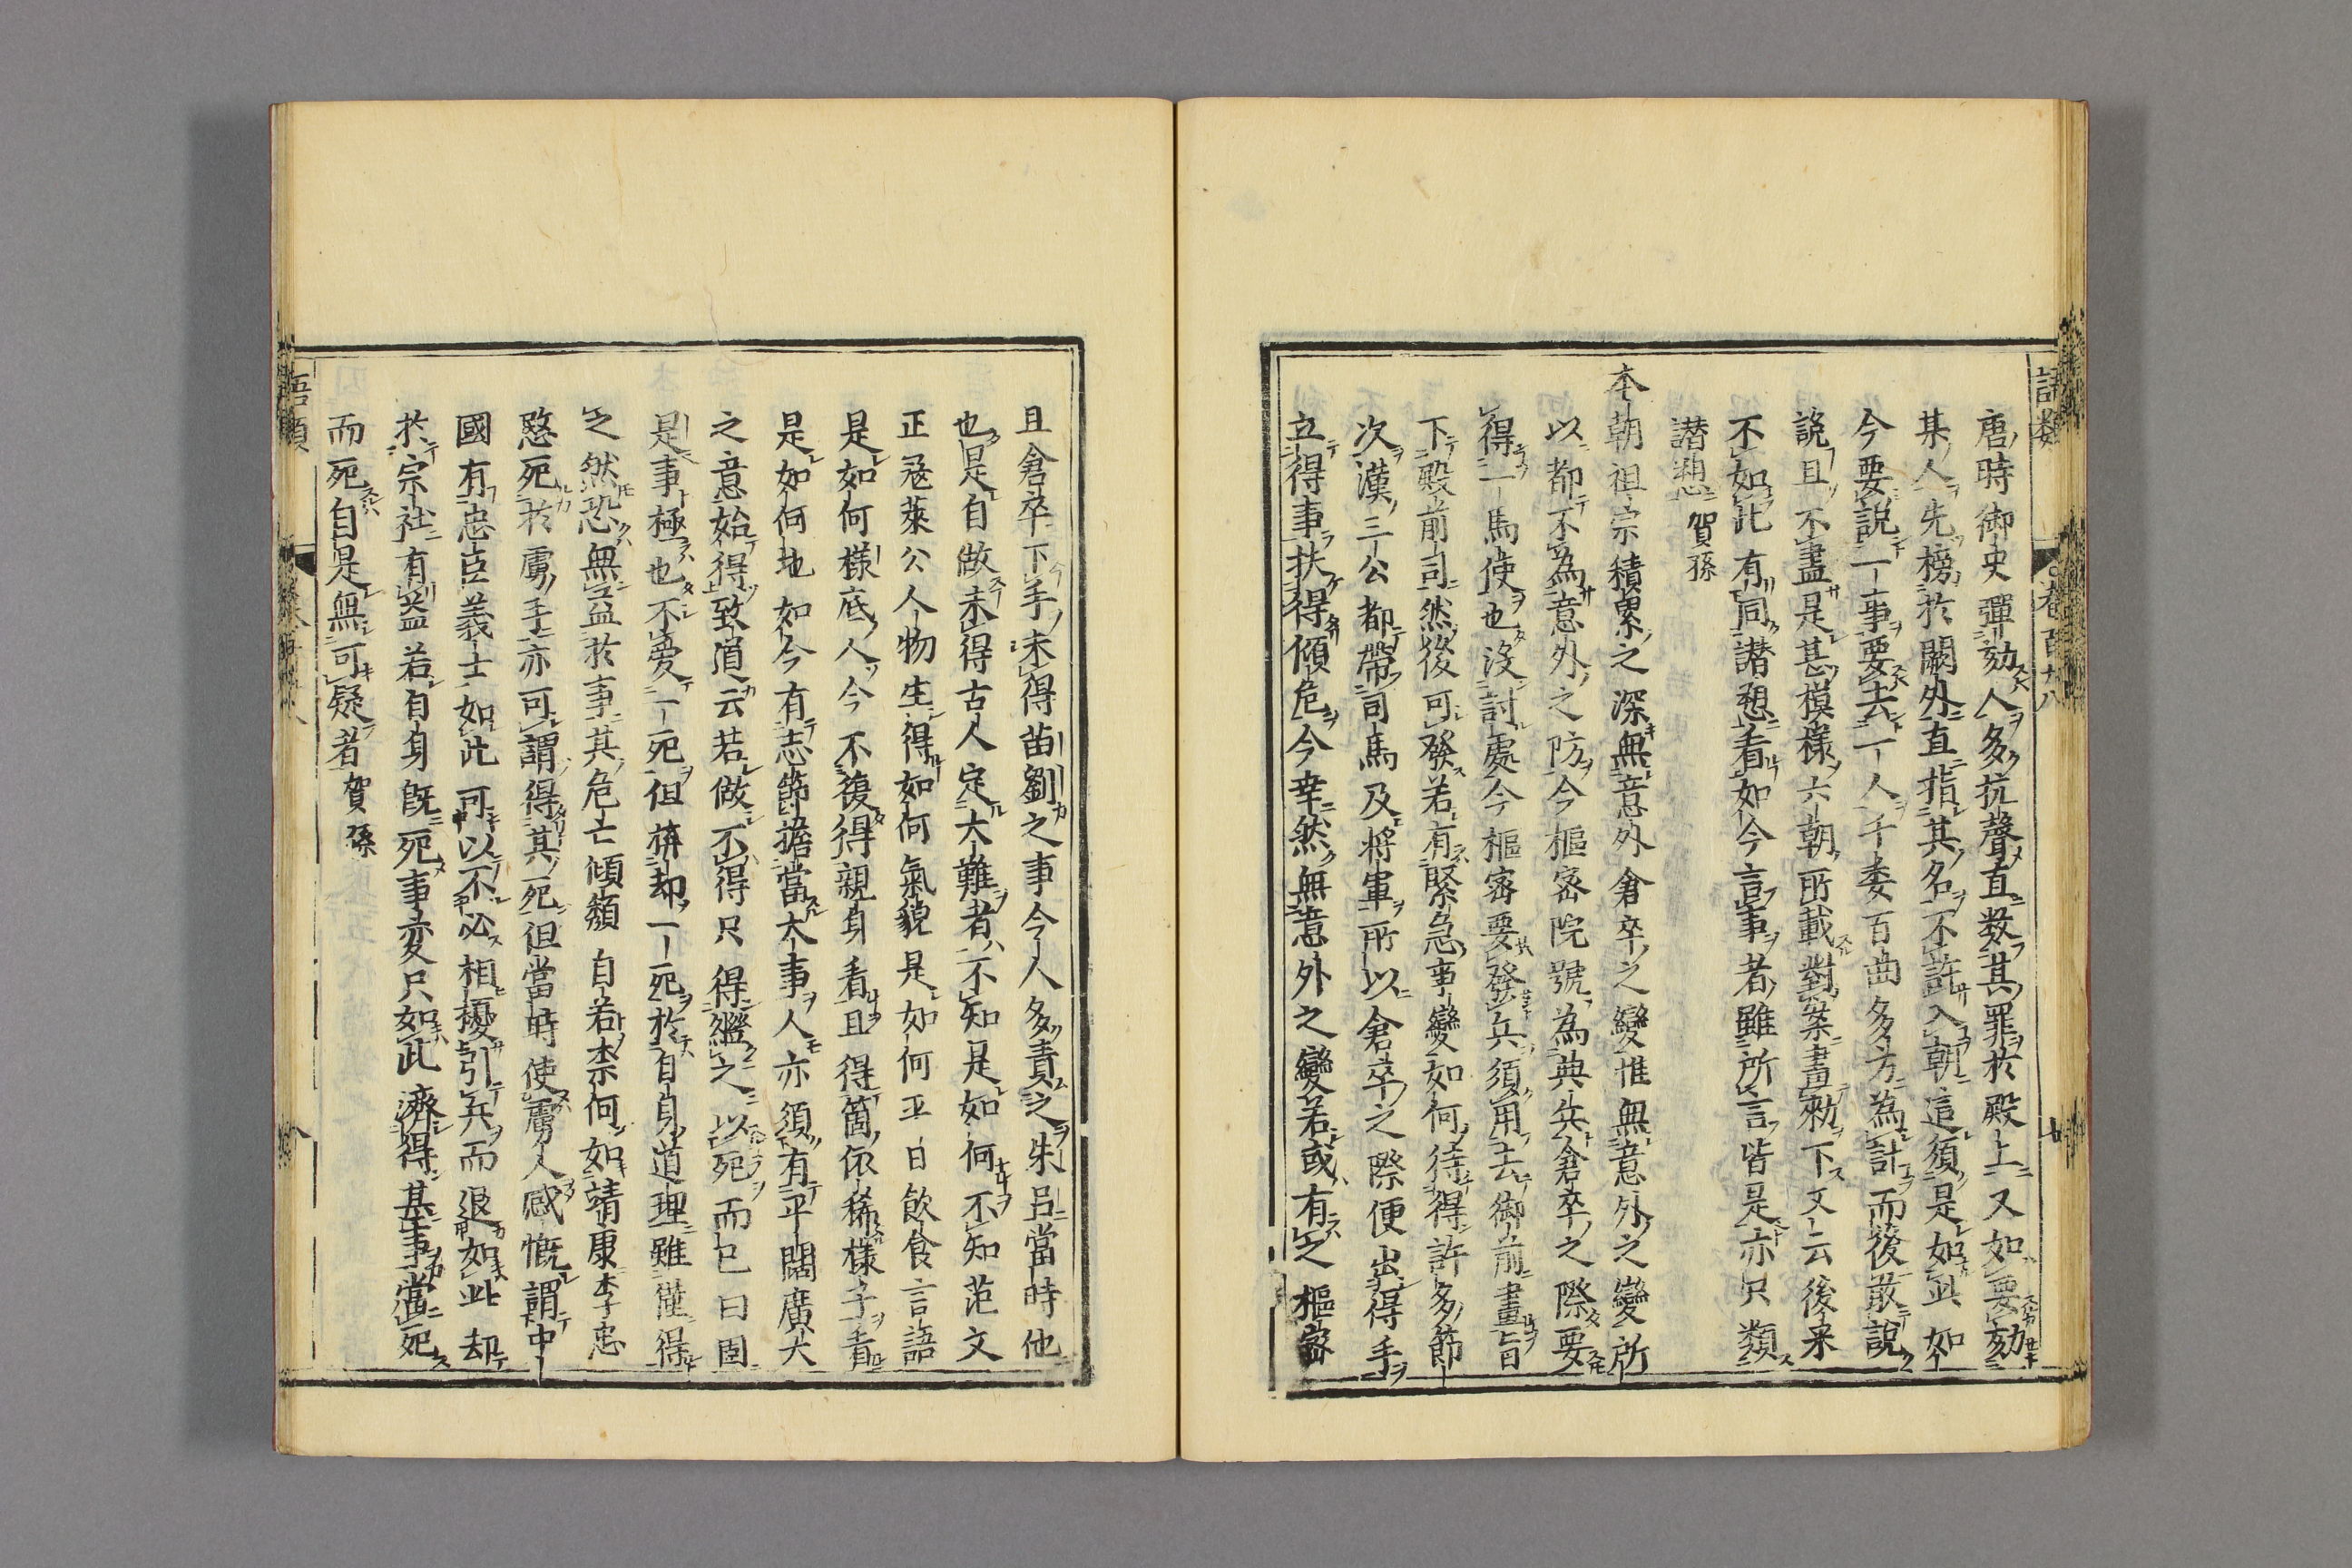 語類
卷百廿八
廿
唐時御史彈劾人多抗聲直数其罪於殿上又如要劾
某人先榜於闕外直指其名不許入朝這須是如此如
今要說一事要去一人千委百曲多方為計而後敢說
說且不盡是甚模様六朝所載對案畫勑下文云後来
不如此有同譖愬看如今言事者雖所言皆是亦只類
譖愬賀孫
本朝祖宗積累之深無意外倉卒之變惟無意外之變所
以都不為意外之防今樞密院號為典兵倉卒之際要
得一馬使也沒討處今樞密要發兵須用去御前畫旨
下殿前司然後可發若有緊急事變如何待得許多節
次漢三公都帶司馬及將軍所以倉卒之際便出得手
立得事扶得傾危今幸然無意外之變若或有之樞密
且倉卒下手未得苗劉之事今人多責之朱呂當時他
也是自做未得古人定大難者不知是如何不知范文
正寇萊公人物生得如何氣貌是如何平日飲食言語
是如何様底人今不復得親身看且得箇依稀様子看
是如何地如今有志節擔當大事人亦須有平闊廣大
之意始得致道云若做不得只得繼之以死而已曰固
是事極也不愛一死但拚却一死於自身道理雖僅得
之然恐無益於事其危亡傾頹自若柰何如靖康李忠
愍死於虜手亦可謂得其死但當時使虜人感慨謂中
國有忠臣義士如此可以不必相擾引兵而退如此却
於宗社有益若自身既死事変只如此濟得甚事當死
而死自是無可疑者賀孫
語類